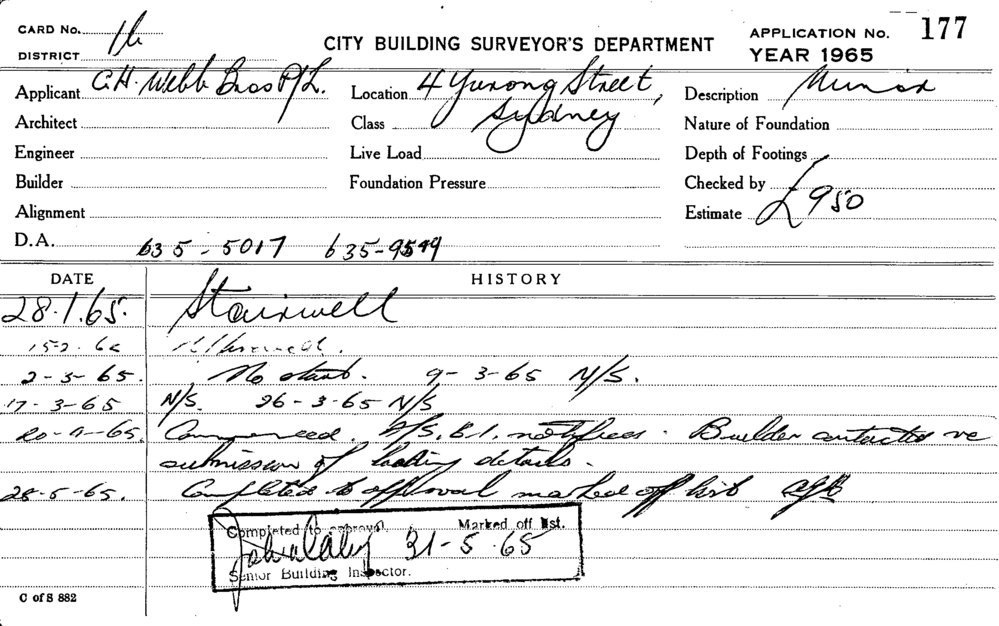 CARD No. 16
DISTRICT
CITY BUILDING SURVEYOR'S DEPARTMENT
APPLICATION No. 177
YEAR 1965
Applicant C.H. Webb Bros P/L.
Location 4 Yurong Street, Sydney
Description Minor
Architect
Class
Nature of Foundation
Engineer
Live Load
Depth of Footings
Builder
Foundation Pressure
Checked by
Alignment
Estimate £950
D.A. 635-5017 635-9549
DATE HISTORY
28.1.65. Stairwell
15-2-65
2-3-65. No start. 9-3-65 N/S.
17-3-65 N/S. 26-3-65 N/S
20-4-65. Commenced. B.I. notified. Builder contacted re
submission of loading details.
28-5-65. Completed to approval marked off list
Completed to approval. Marked off list.
31-5-65
Senior Building Inspector.
C of S 882